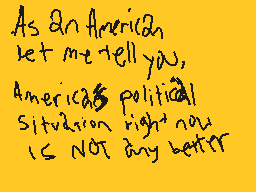 As an American
let me tell you,
Americas political
situation right now
is NOT any better